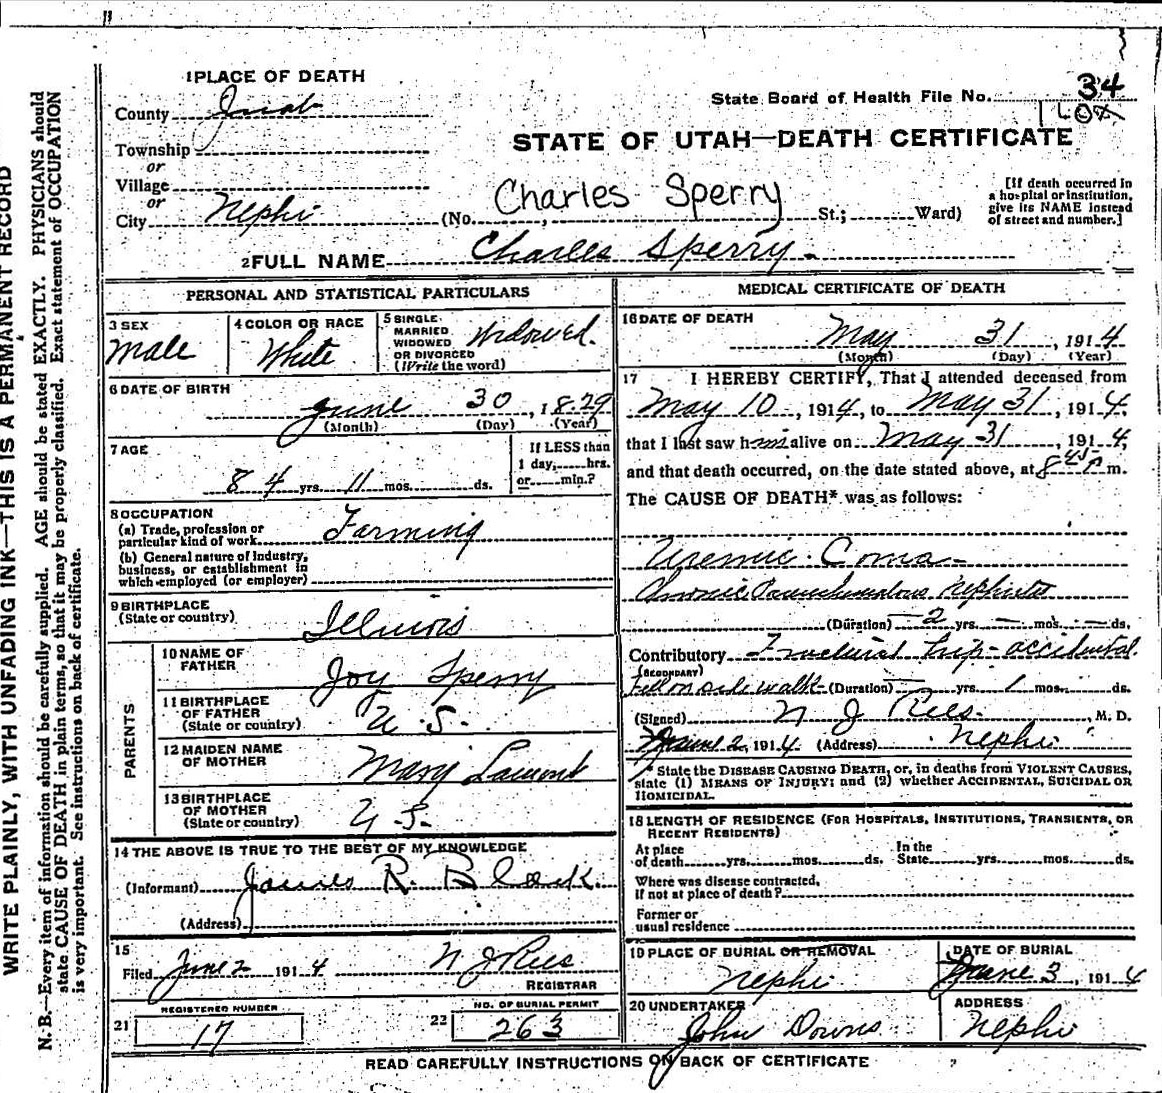 1 PLACE OF DEATH
County Juab
Township
or
Village
or
City Nephi
State Board of Health File No. 34
STATE OF UTAH—DEATH CERTIFICATE
Charles Sperry
(No. , St.; Ward)
[If death occurred in
a hospital or institution,
give its NAME instead
of street and number.]
2 FULL NAME Charles Sperry
PERSONAL AND STATISTICAL PARTICULARS
3 SEX
Male
4 COLOR OR RACE
White
5 SINGLE
MARRIED
WIDOWED
OR DIVORCED
(Write the word)
Widowed.
6 DATE OF BIRTH
June 30, 1829
(Month) (Day) (Year)
7 AGE
84 yrs. 11 mos. ds.
If LESS than
1 day, hrs.
or min.?
8 OCCUPATION
(a) Trade, profession or
particular kind of work Farming
(b) General nature of industry,
business, or establishment in
which employed (or employer)
9 BIRTHPLACE
(State or country) Illinois
PARENTS
10 NAME OF
FATHER Joy Sperry
11 BIRTHPLACE
OF FATHER
(State or country) U.S.
12 MAIDEN NAME
OF MOTHER Mary Lamont
13 BIRTHPLACE
OF MOTHER
(State or country) U.S.
14 THE ABOVE IS TRUE TO THE BEST OF MY KNOWLEDGE
(Informant) James R. Black.
(Address)
15
Filed June 2 1914 N J Rees
REGISTRAR
REGISTERED NUMBER
21 17
NO. OF BURIAL PERMIT
22 263
MEDICAL CERTIFICATE OF DEATH
16 DATE OF DEATH
May 31, 1914
(Month) (Day) (Year)
17 I HEREBY CERTIFY, That I attended deceased from
May 10, 1914, to May 31, 1914,
that I last saw him alive on May 31, 1914,
and that death occurred, on the date stated above, at 8 45 P m.
The CAUSE OF DEATH* was as follows:
Uremic Coma
Chronic Parenchymatous Nephritis
(Duration) 2 yrs. — mos. — ds.
Contributory Fractured hip-accidental.
(SECONDARY)
Fell on side walk- (Duration) — yrs. 1 mos. ds.
(Signed) N J Rees. , M. D.
June 2, 1914. (Address) Nephi
* State the DISEASE CAUSING DEATH, or, in deaths from VIOLENT CAUSES,
state (1) MEANS OF INJURY; and (2) whether ACCIDENTAL, SUICIDAL OR
HOMICIDAL.
18 LENGTH OF RESIDENCE (FOR HOSPITALS, INSTITUTIONS, TRANSIENTS, OR
RECENT RESIDENTS)
At place
of death yrs. mos. ds.
In the
State yrs. mos. ds.
Where was disease contracted,
if not at place of death?
Former or
usual residence
19 PLACE OF BURIAL OR REMOVAL
Nephi
DATE OF BURIAL
June 3, 1914
20 UNDERTAKER
John Downs
ADDRESS
Nephi
READ CAREFULLY INSTRUCTIONS ON BACK OF CERTIFICATE
WRITE PLAINLY, WITH UNFADING INK—THIS IS A PERMANENT RECORD
N. B.—Every item of information should be carefully supplied. AGE should be stated EXACTLY. PHYSICIANS should
state CAUSE OF DEATH in plain terms, so that it may be properly classified. Exact statement of OCCUPATION
is very important. See instructions on back of certificate.